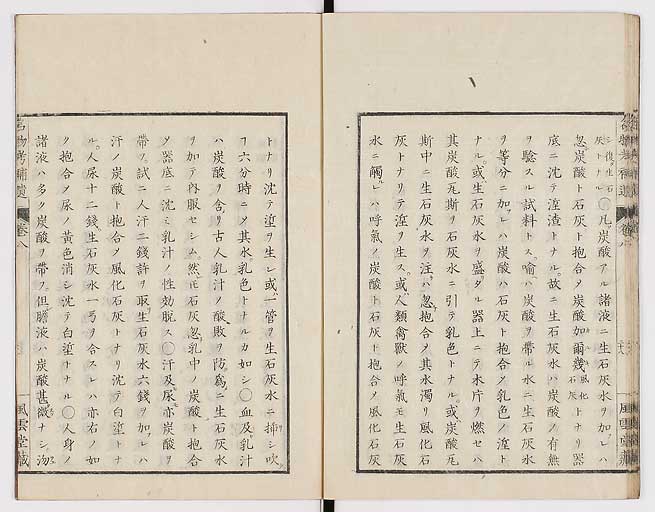 シ復タ生石
灰トナル〇凡ソ炭酸アル諸液ニ生石灰水ヲ加レハ
忽炭酸ト石灰ト抱合ヲ炭酸加爾幾風化石灰トナリ器
底ニ沈テ滓渣トナル。故ニ生石灰水ハ炭酸ノ有無
ヲ驗スル試料トス。喻ハ炭酸ヲ帶ル水ニ生石灰水
ヲ等分ニ加レハ炭酸ハ石灰ト抱合メ乳色ノ滓ト
ナル。或生石灰水ヲ盛タル器上ニテ木片ヲ燃セハ
其炭酸瓦斯ヲ石灰水ニ引テ乳色トナル。或炭酸瓦
斯中ニ生石灰水ヲ注ハ忽抱合メ其水濁リ風化石
灰トナリテ滓ヲ生ス。或人類禽獸ノ呼氣モ生石灰
水ニ觸レハ呼氣ノ炭酸ト石灰ト抱合メ風化石灰
トナリ沈テ塗ヲ生レ或一管ヲ生石灰水ニ挿シ吹
フ六分時ニメ其水乳色トナルカ如シ〇血及乳汁
ハ炭酸ヲ含リ古人乳汁ノ酸敗ヲ防爲ニ生石灰水
ヲ加テ內服セシム。然モ石灰忽乳中ノ炭酸ト抱合
メ器底ニ沈モ乳汁ノ性効脫ス〇汗及尿亦炭酸ヲ
帶フ。試ニ人汗二錢許ヲ取生石灰水六錢ヲ加レハ
汗ノ炭酸ト抱合メ風化石灰トナリ沈テ白塗トナ
ル。人尿十二錢生石灰水一号ヲ合スレハ亦右ノ如
ク抱合メ尿ノ黃色消シ沈テ白塗トナル〇人身ノ
諸液ハ多ク炭酸ヲ帶フ。但膽液ハ炭酸甚微ナシ。汤
名物考補遺
卷八
風雲堂藏